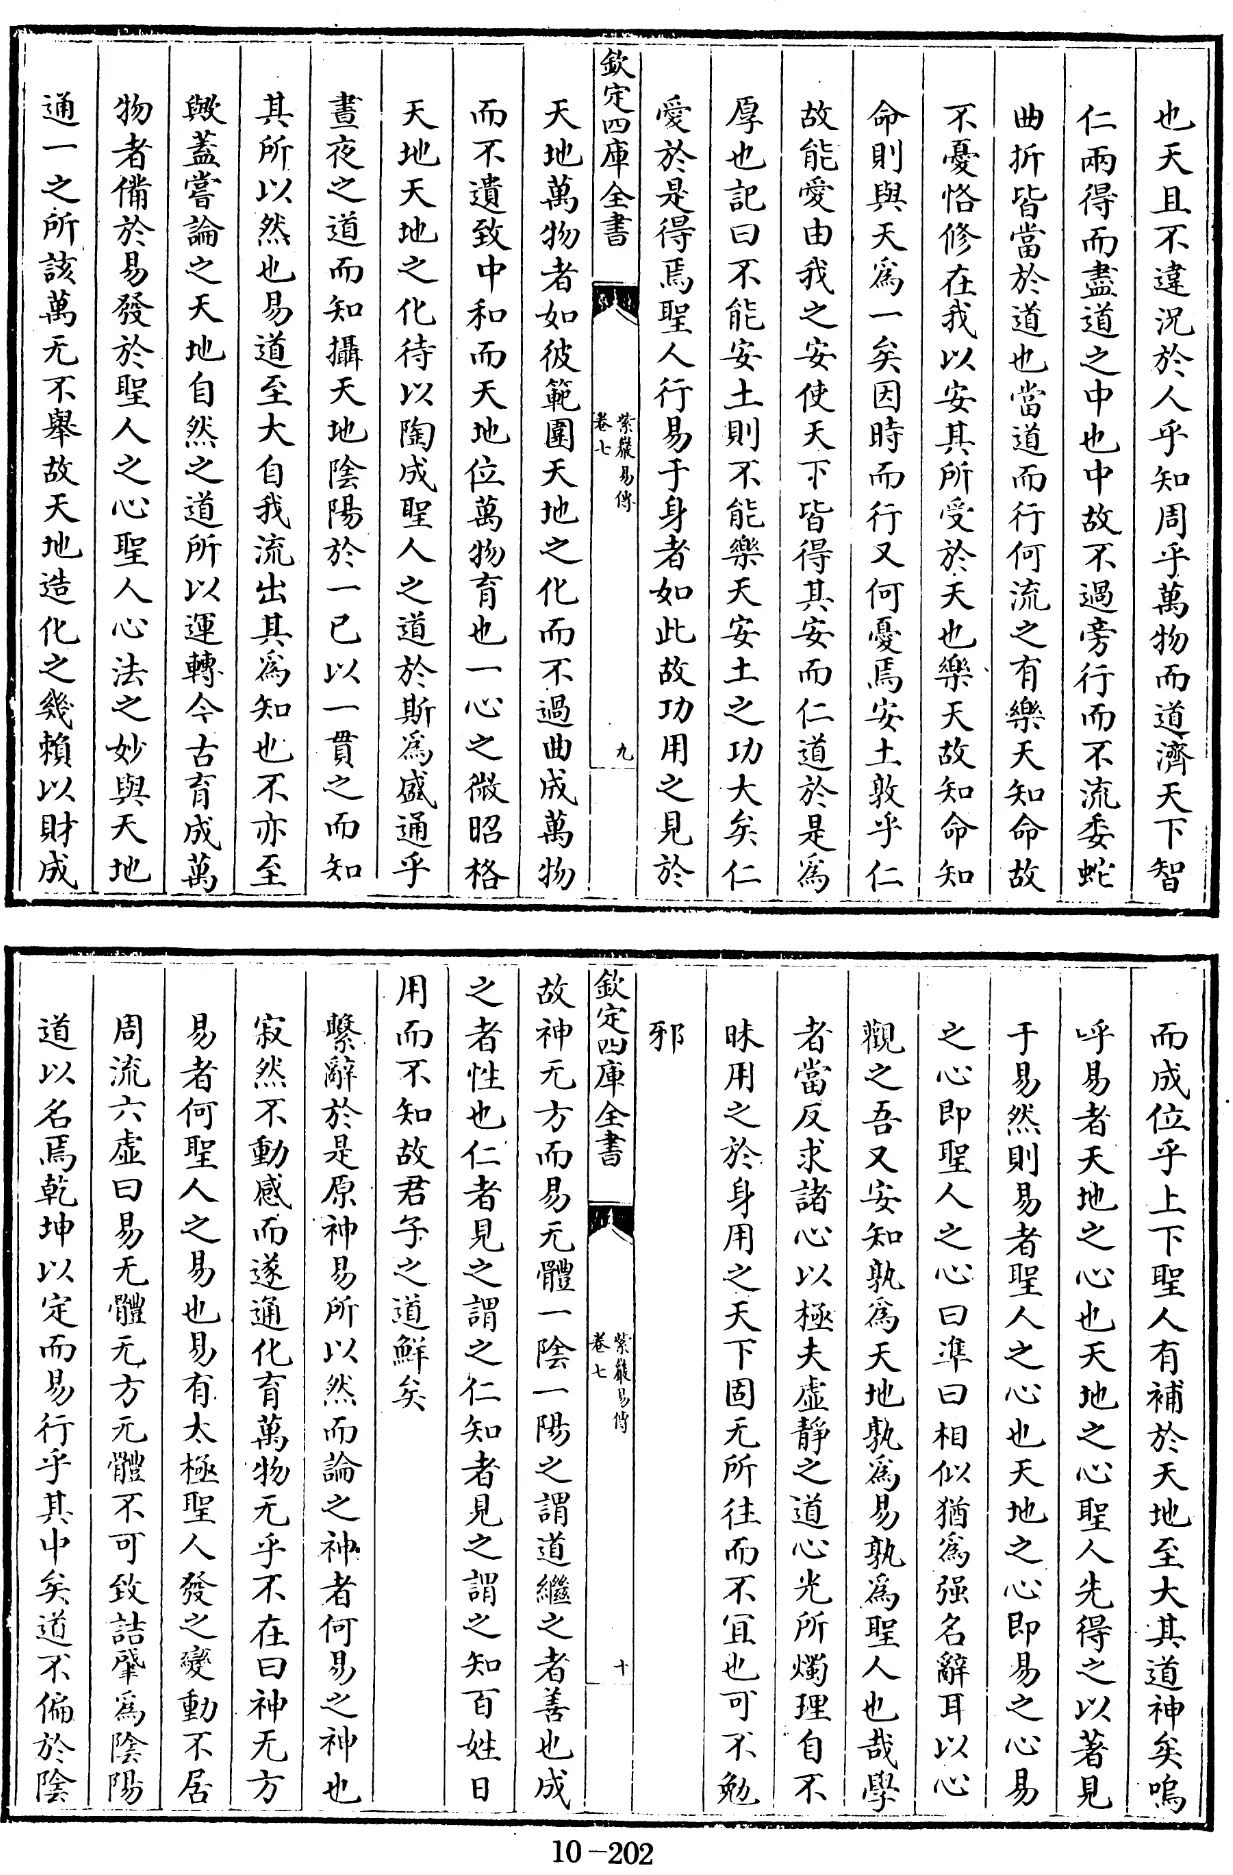 也天且不違況於人乎知周乎萬物而道濟天下智
仁兩得而盡道之中也中故不過旁行而不流委蛇
曲折皆當於道也當道而行何流之有樂天知命故
不憂恪修在我以安其所受於天也樂天故知命知
命則與天爲一矣因時而行又何憂焉安土敦乎仁
故能愛由我之安使天下皆得其安而仁道於是爲
厚也記曰不能安土則不能樂天安土之功大矣仁
愛於是得焉聖人行易于身者如此故功用之見於
欽定四庫全書
紫巖易傳
卷七
九
天地萬物者如彼範圍天地之化而不過曲成萬物
而不遺致中和而天地位萬物育也一心之微昭格
天地天地之化待以陶成聖人之道於斯爲盛通乎
晝夜之道而知攝天地陰陽於一已以一貫之而知
其所以然也易道至大自我流出其爲知也不亦至
歟蓋嘗論之天地自然之道所以運轉今古育成萬
物者備於易發於聖人之心聖人心法之妙與天地
通一之所該萬无不舉故天地造化之幾賴以財成
而成位乎上下聖人有補於天地至大其道神矣嗚
呼易者天地之心也天地之心聖人先得之以著見
于易然則易者聖人之心也天地之心即易之心易
之心即聖人之心曰準曰相似猶爲强名辭耳以心
觀之吾又安知孰爲天地孰爲易孰爲聖人也哉學
者當反求諸心以極夫虛靜之道心光所燭理自不
昧用之於身用之天下固无所往而不宜也可不勉
邪
欽定四庫全書
紫巖易傳
卷七
十
故神无方而易无體一陰一陽之謂道繼之者善也成
之者性也仁者見之謂之仁知者見之謂之知百姓日
用而不知故君子之道鮮矣
繫辭於是原神易所以然而論之神者何易之神也
寂然不動感而遂通化育萬物无乎不在曰神无方
易者何聖人之易也易有太極聖人發之變動不居
周流六虛曰易无體无方无體不可致詰肇爲陰陽
道以名焉乾坤以定而易行乎其中矣道不偏於陰
10-202